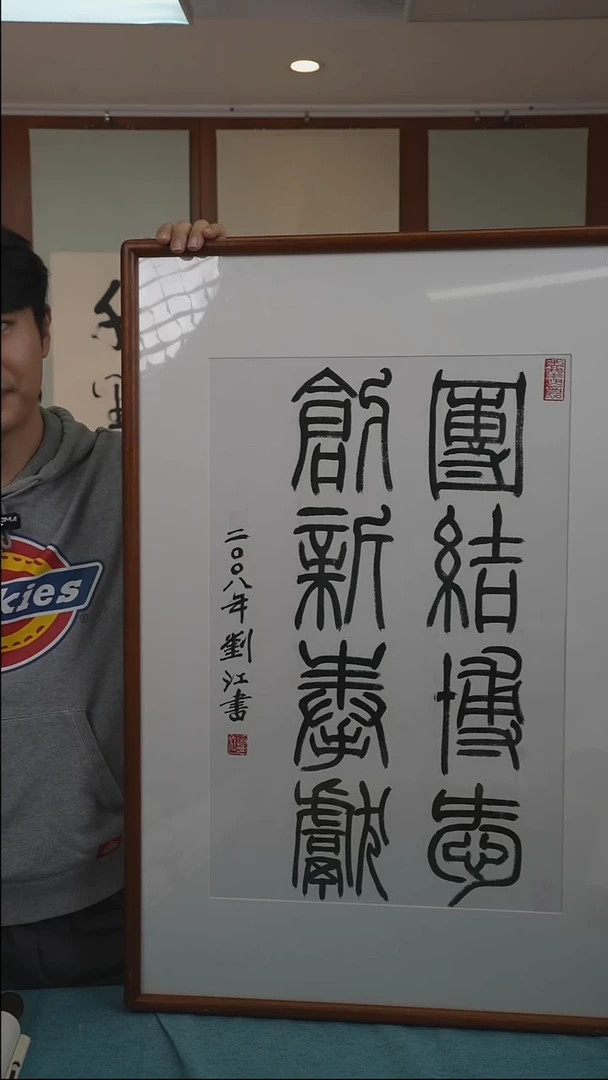 團結博愛
創新奉獻
二〇〇八年劉江書
kies